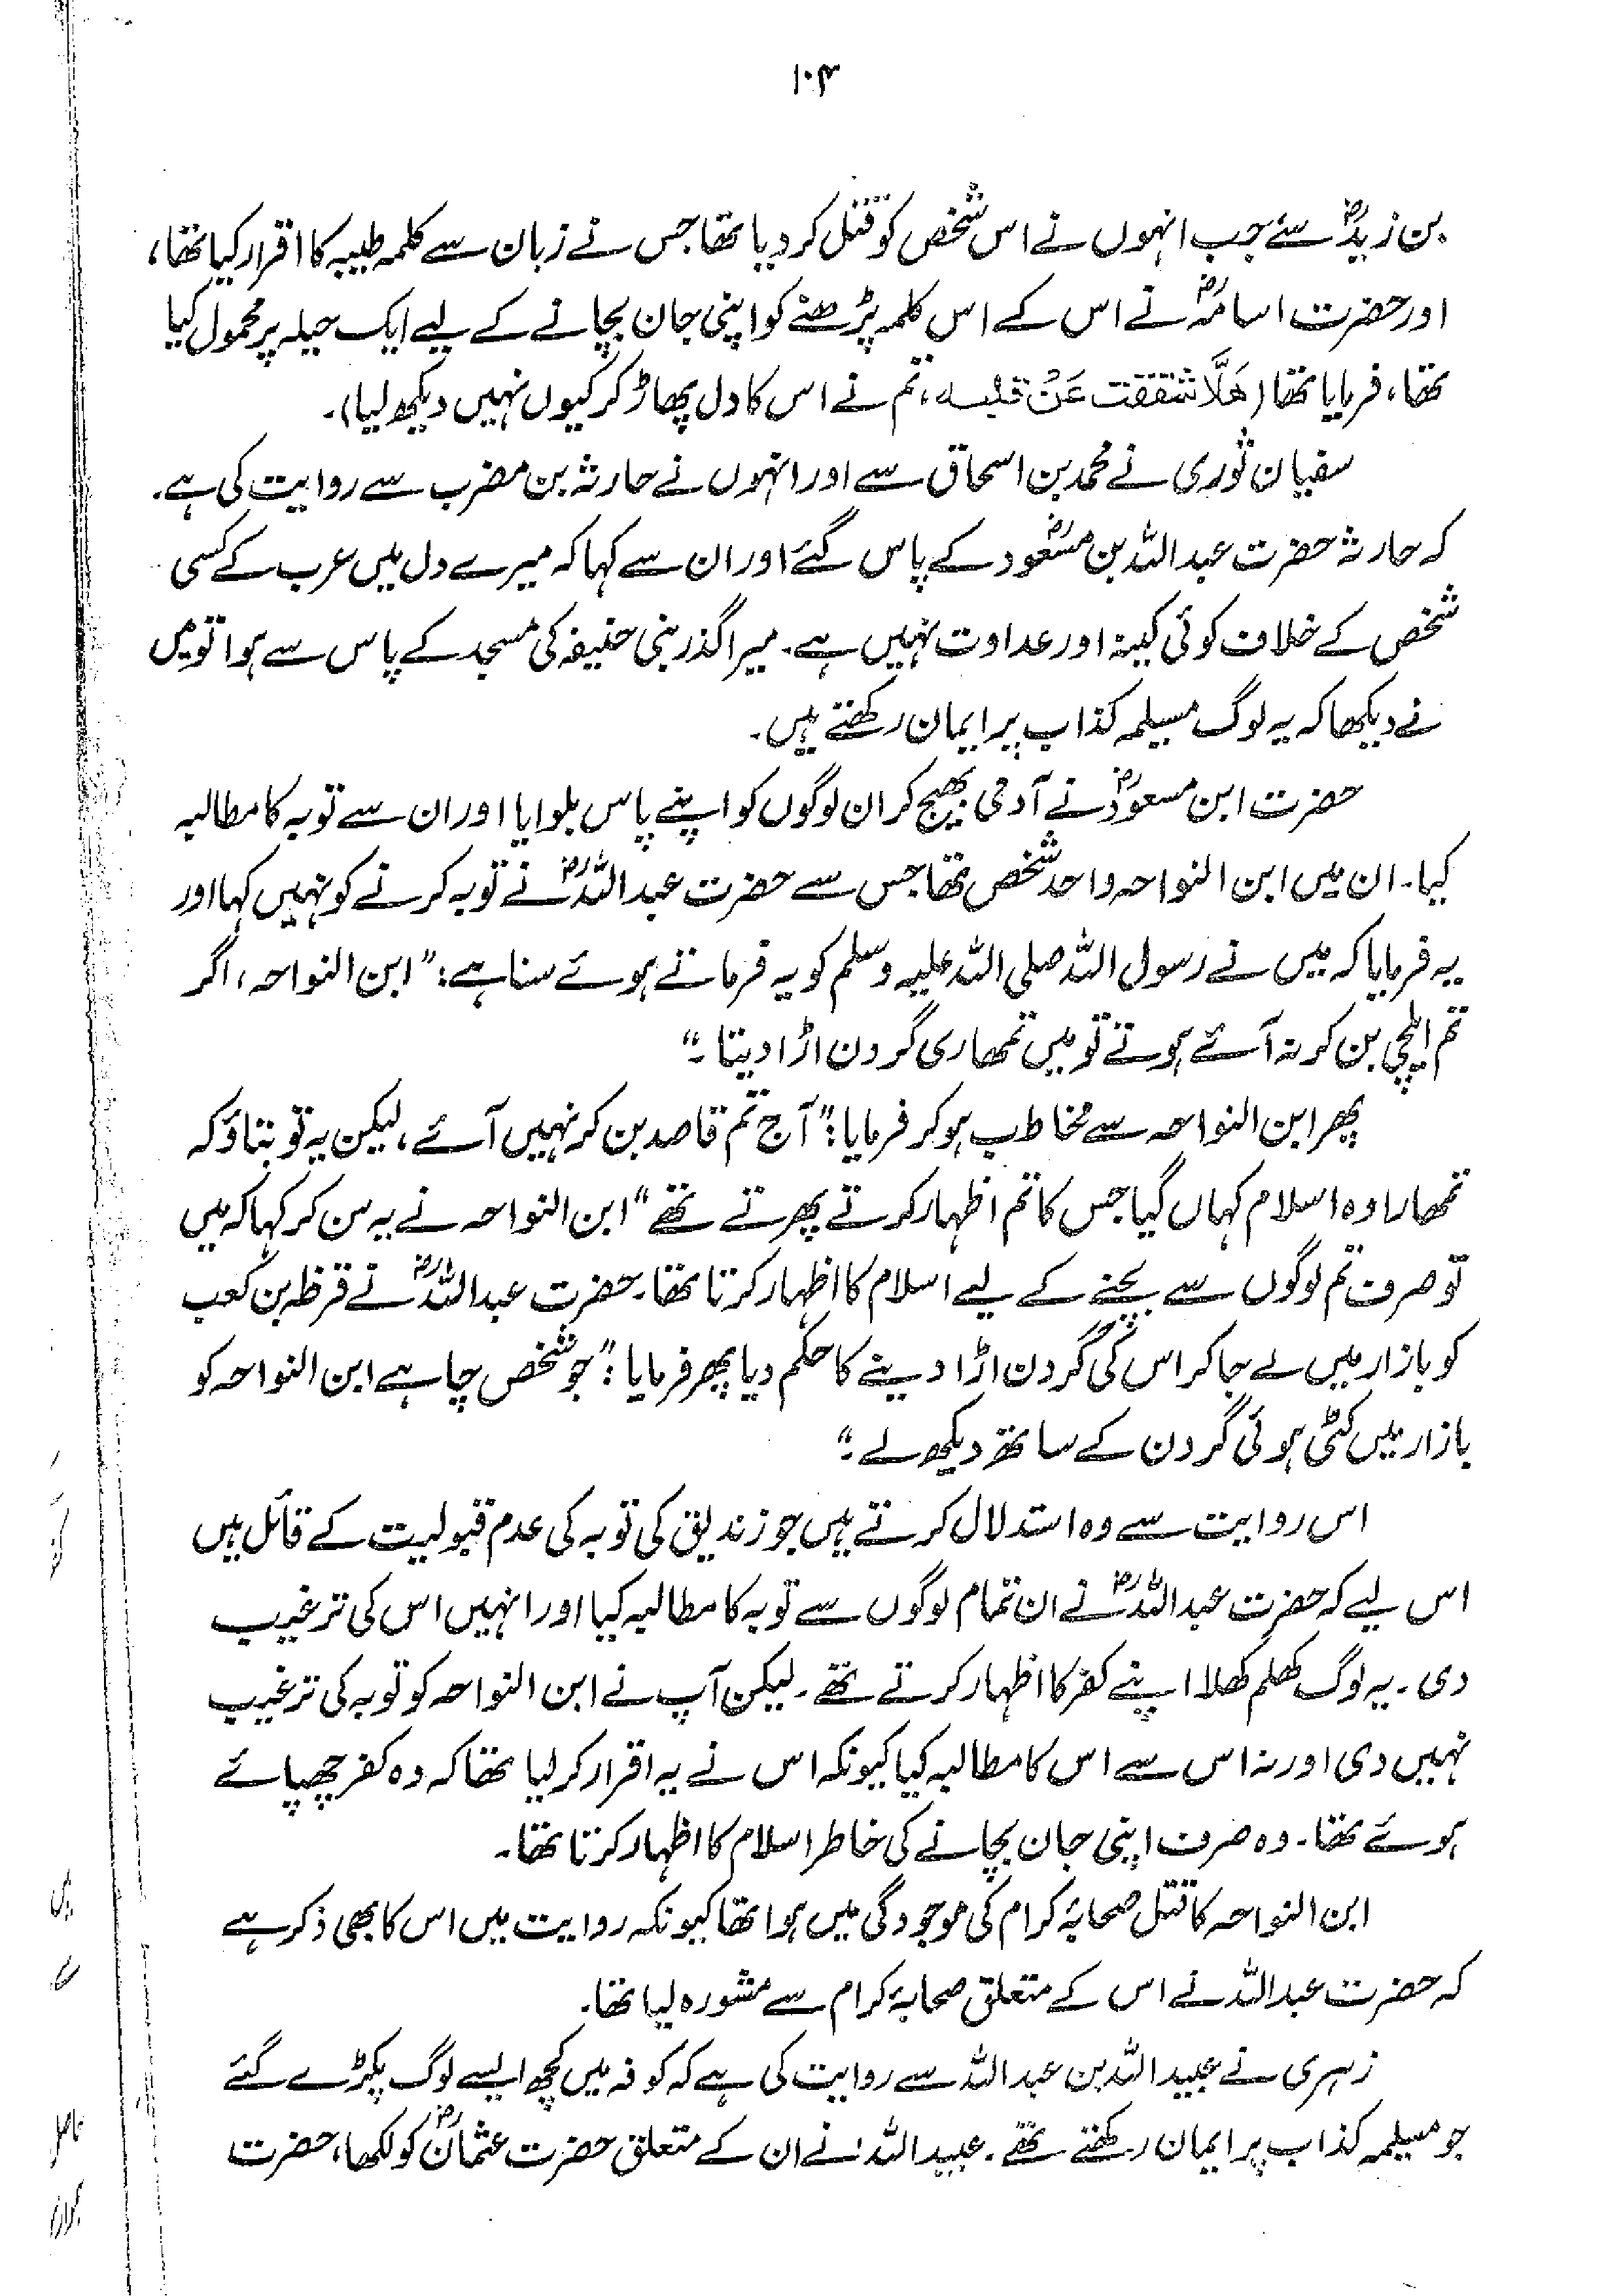 ۱۰۴
بن زیدؓ سے جب انہوں نے اس شخص کو قتل کر دیا تھا جس نے زبان سے کلمہ طیبہ کا اقرار کیا تھا،
اور حضرت اسامہؓ نے اس کے اس کلمہ پڑھنے کو اپنی جان بچانے کے لیے ایک حیلہ پر محمول کیا
تھا، فرمایا تھا (هَلَّا شققت عَنْ قلبه، تم نے اس کا دل پھاڑ کر کیوں نہیں دیکھ لیا)۔
سفیان ثوری نے محمد بن اسحاق سے اور انہوں نے حارثہ بن مضرب سے روایت کی ہے۔
کہ حارثہ حضرت عبد اللہ بن مسعودؓ کے پاس گئے اور ان سے کہا کہ میرے دل میں عرب کے کسی
شخص کے خلاف کوئی کینہ اور عداوت نہیں ہے۔ میرا گذر بنی حنیفہ کی مسجد کے پاس سے ہوا تو میں
نے دیکھا کہ یہ لوگ مسیلمہ کذاب پر ایمان رکھتے ہیں۔
حضرت ابن مسعودؓ نے آدمی بھیج کر ان لوگوں کو اپنے پاس بلوایا اور ان سے توبہ کا مطالبہ
کیا۔ ان میں ابن النواحہ واحد شخص تھا جس سے حضرت عبد اللہؓ نے توبہ کرنے کو نہیں کہا اور
یہ فرمایا کہ میں نے رسول اللہ صلی اللہ علیہ وسلم کو یہ فرماتے ہوئے سنا ہے: "ابن النواحہ، اگر
تم ایلچی بن کر نہ آئے ہوتے تو میں تمھاری گردن اڑا دیتا۔"
پھر ابن النواحہ سے مخاطب ہو کر فرمایا: "آج تم قاصد بن کر نہیں آئے، لیکن یہ تو بتاؤ کہ
تمھارا وہ اسلام کہاں گیا جس کا تم اظہار کرتے پھرتے تھے" ابن النواحہ نے یہ سن کر کہا کہ میں
تو صرف تم لوگوں سے بچنے کے لیے اسلام کا اظہار کرتا تھا۔ حضرت عبد اللہؓ نے قرظہ بن کعب
کو بازار میں لے جا کر اس کی گردن اڑا دینے کا حکم دیا پھر فرمایا: "جو شخص چاہے ابن النواحہ کو
بازار میں کٹی ہوئی گردن کے ساتھ دیکھ لے۔"
اس روایت سے وہ استدلال کرتے ہیں جو زندیق کی توبہ کی عدم قبولیت کے قائل ہیں
اس لیے کہ حضرت عبد اللہؓ نے ان تمام لوگوں سے توبہ کا مطالبہ کیا اور انہیں اس کی ترغیب
دی۔ یہ لوگ کھلم کھلا اپنے کفر کا اظہار کرتے تھے۔ لیکن آپ نے ابن النواحہ کو توبہ کی ترغیب
نہیں دی اور نہ اس سے اس کا مطالبہ کیا کیونکہ اس نے یہ اقرار کر لیا تھا کہ وہ کفر چھپائے
ہوئے تھا۔ وہ صرف اپنی جان بچانے کی خاطر اسلام کا اظہار کرتا تھا۔
ابن النواحہ کا قتل صحابۂ کرام کی موجودگی میں ہوا تھا کیونکہ روایت میں اس کا بھی ذکر ہے
کہ حضرت عبد اللہ نے اس کے متعلق صحابۂ کرام سے مشورہ لیا تھا۔
زہری نے عبید اللہ بن عبد اللہ سے روایت کی ہے کہ کوفہ میں کچھ ایسے لوگ پکڑے گئے
جو مسیلمہ کذاب پر ایمان رکھتے تھے۔ عبید اللہ نے ان کے متعلق حضرت عثمانؓ کو لکھا، حضرت